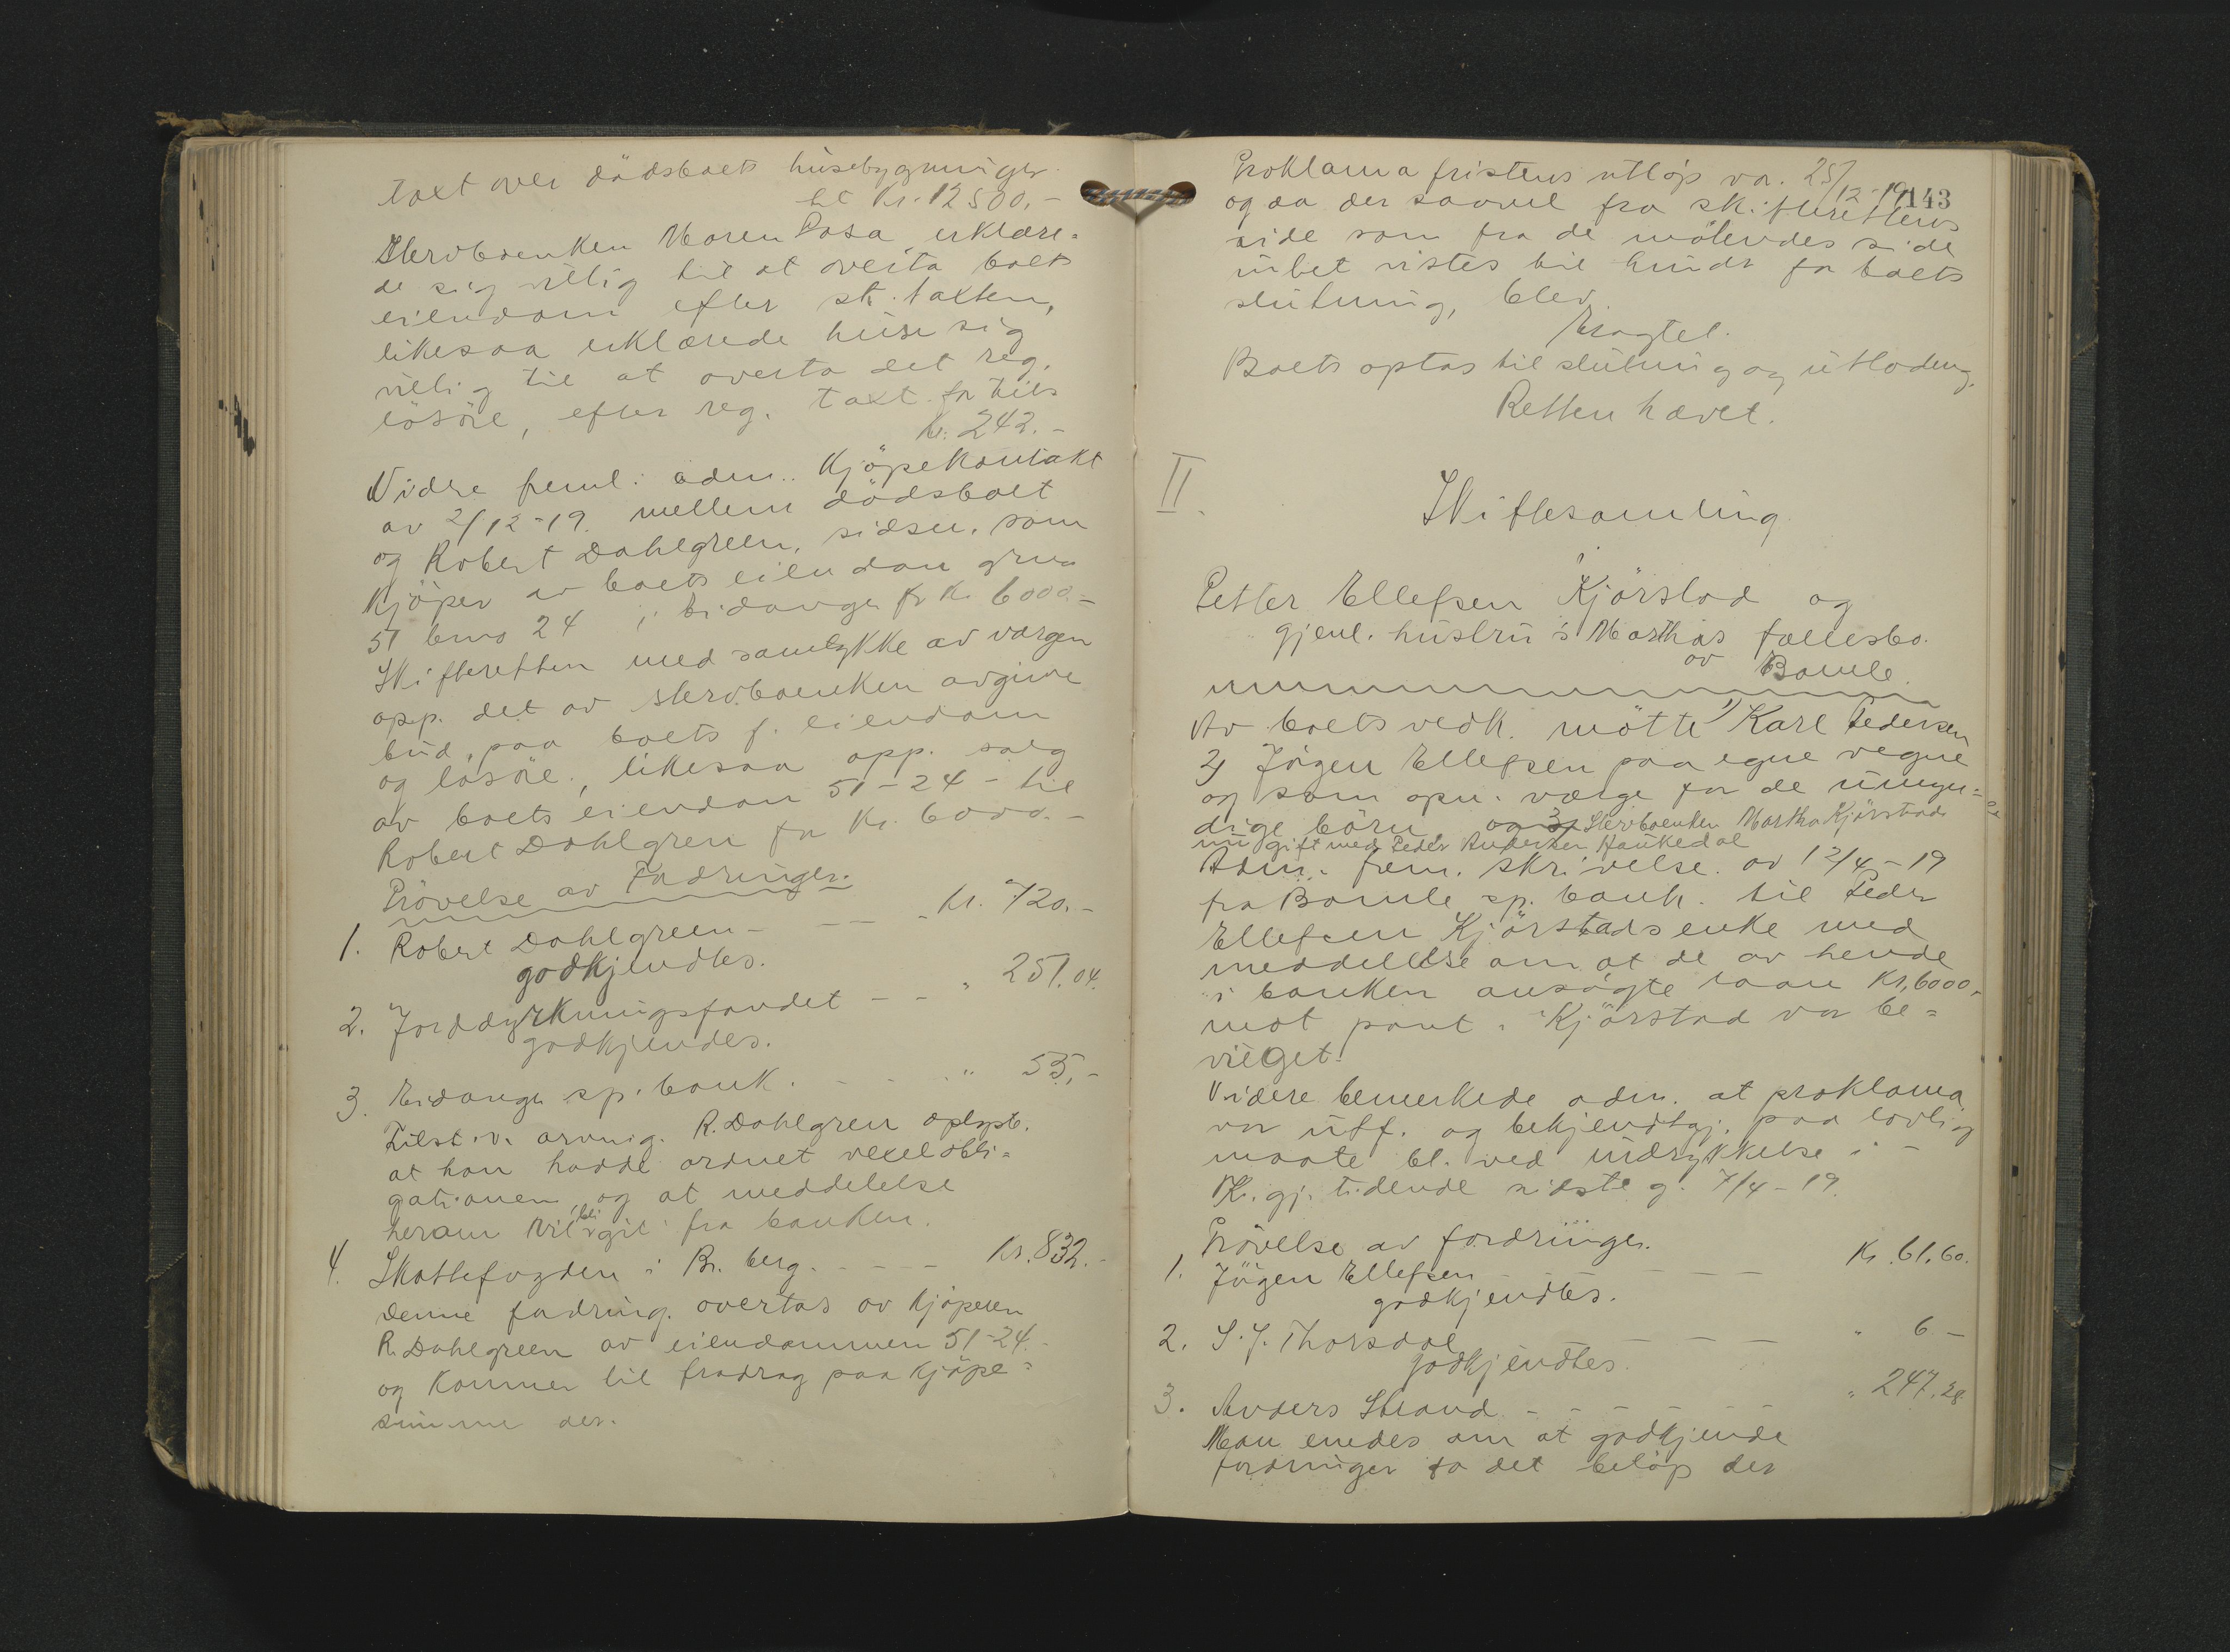 taxt over dödsboets husebygninger
til Kr. 12500,-
Stervboenken Maren Rosa erklære-
de sig villig til at overta boets
eiendom efter sk. taxten,
likesaa erklærede hun sig
villig til at overta det reg.
lösöre, efter reg. taxt for tils
kr. 242.-
Vidre freml. adm. Kjöpekontrakt
av 2/12-19. mellem dödsboet
og Robert Dahlgreen, som
kjöper av boets eiendom gnr.
51 bno 24 i Eidanger for kr 6000.-
Skifteretten med samtykke av værgen
opp. det av stervboenken avgivne
bud, paa boets f. eiendom
og lösöre, likesaa opp. salg
av boets eiendom 51-24- til
Robert Dahlgren for Kr. 6000.-
Prövelse av Fordringer.
1. Robert Dahlgreen - - - Kr. 720.-
godkjendtes.
2. Jorddyrkningsfondet - - " 251.04.
godkjendes.
3. Eidanger sp. bank. - - - " 53,-
Tilst.v. arving. R. Dahlgren oplyste.
at han hadde ordnet vexelobli-
gationen, og at meddelelse
herom vil bli git fra banken.
4. Skattefogden i Br. berg. - - - Kr. 832.-
Denne fordring. overtas av kjöperen
R. Dahlgreen av eiendommen 51-24.-
og kommer til fradrag paa kjöpe-
summen der.
Proklama fristens utlöp var. 25/12-19
143
og da der saavel fra skifterettens
side som fra de mötendes side
intet vistes til hindr for boets
slutning, blev.
Eragtet.
Boets optas til slutning og utlodning.
Retten hævet.
II.
Skiftesamling
i
Petter Ellefsen Kjörstad og
gjenl. hustru's Marthas fællesbo.
av Bamle.
Av boets vedk. mötte 1) Karl Pedersen
2) Jörgen Ellefsen paa egne vegne
og som opn. værge for de umyn-
dige börn og 3) Stervboenken Martha Kjörstad
nu gift med Peder Andersen Haukedal
Adm. frem. skrivelse av 12/4-19
fra Bamle sp. bank. til Peder
Ellefsen Kjörstads enke med
meddelelse om at de av hende
i banken ansögte laan Kr. 6000,-
mot pant i Kjörstad var be-
vilget.
Videre bemerkede adm. at proklama
var utf. og bekjendtgj. paa lovlig
maate bl. ved indrykkelse i -
K.gj. tidende sidste g. 7/4-19.
Prövelse av fordringer.
1. Jörgen Ellefsen - - - - Kr. 61,60.
godkjendtes.
2. S. J. Thorsdal - - - - " 6 -
godkjendtes.
3. Anders Strand - - - - - " 247.28.
Man enedes om at godkjende
fordringer for det belöp der